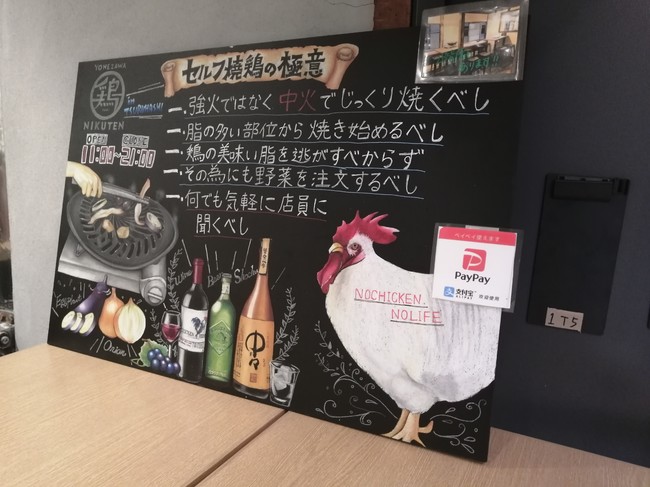 セルフ焼鶏の極意
YONEZAWA
鶏
NIKUTEN
OPEN CLOSE
11:00~21:00
一、強火ではなく中火でじっくり焼くべし
一、脂の多い部位から焼き始めるべし
一、鶏の美味い脂を逃がすべからず
一、その為にも野菜を注文するべし
一、何でも気軽に店員に
聞くべし
Eggplant
Onion
Wine
Shochu
中々
NOCHICKEN.
NOLIFE
ペイペイ使えます
PayPay
支付宝
欢迎使用
1T5